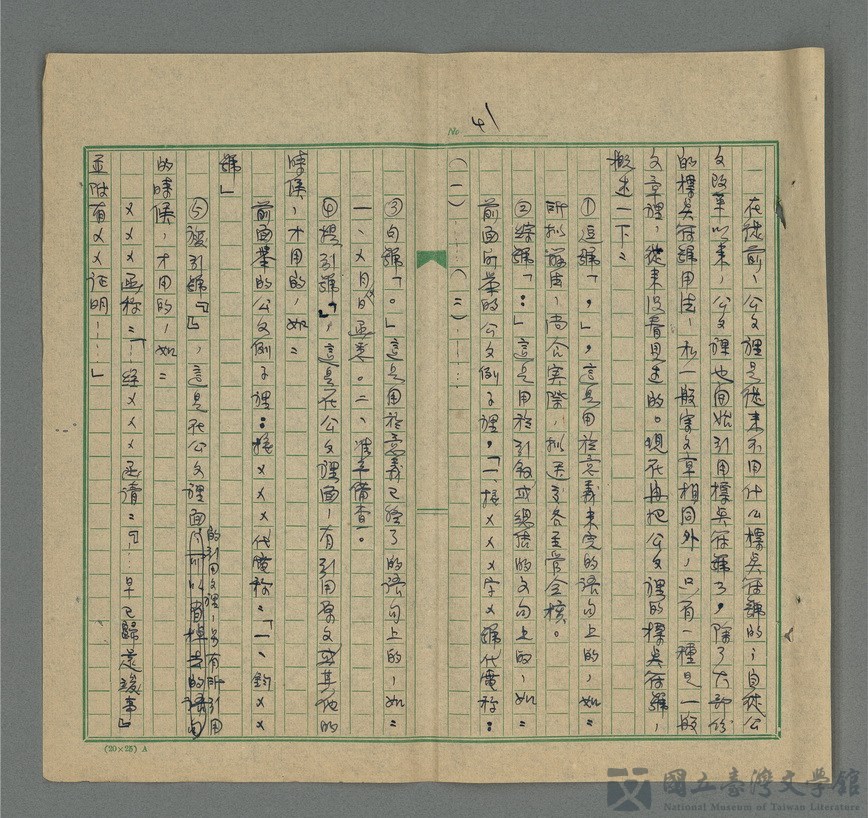 No 41
在從前，公文裡是從來不用什么標点符號的；自從公
文改革以來，公文裡也開始引用標点符號了，除了大部份
的標点符號用法，和一般寫文章相同外，只有一種是一般
文章裡，從來沒看見過的。現在再把公文裡的標点符號，
概述一下：
①逗號「，」，這是用於意義未完的語句上的，如：
所擬辦法，尚合実際，擬送交各主管会核。
②綜號「：」這是用於引敘或總結的文句上的，如：
前面所举的公文例子裡，「一、據×××字×號代電称：
（一）……（二）……
③句號「。」這是用於意義已经了的語句上的，如：
一、×月×日函悉。二、准予備查。
④提引號「」，這是在公文裡面，有引用原文或其他的
時候，才用的，如：
前面举的公文例子裡：據×××代電称：「一、鈞××
號」
⑤複引號『』，這是在公文裡面的引用文裡，另有所引用
的時候，才用的，如：
×××函称：「…经×××函請：『…早已歸還竣事』
並附有××证明……」
(20×25) A
國立臺灣文學館
National Museum of Taiwan Literature